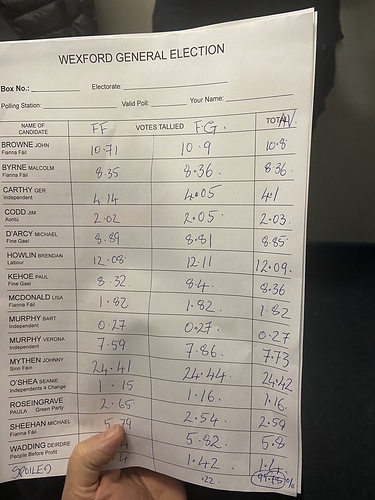 WEXFORD GENERAL ELECTION
Box No.: Electorate:
Polling Station: Valid Poll: Your Name:
NAME OF CANDIDATE FF VOTES TALLIED FG. TOTAL
BROWNE JOHN Fianna Fáil 10.71 10.9 10.8
BYRNE MALCOLM Fianna Fáil 8.35 8.36. 8.36.
CARTHY GER Independent 4.14 4.05 4.1
CODD JIM Aontú 2.02 2.05. 2.03.
D'ARCY MICHAEL Fine Gael 8.89 8.81 8.85
HOWLIN BRENDAN Labour 12.08 12.11 12.09.
KEHOE PAUL Fine Gael 8.32. 8.4. 8.36
MCDONALD LISA Fianna Fáil 1.82 1.82. 1.82
MURPHY BART Independent 0.27 0.27. 0.27
MURPHY VERONA Independent 7.59 7.86. 7.73
MYTHEN JOHNNY Sinn Féin 24.41 24.44. 24.42
O'SHEA SEANIE Independents 4 Change 1.15 1.16. 1.16.
ROSEINGRAVE PAULA Green Party 2.65 2.54. 2.59
SHEEHAN MICHAEL Fianna Fáil 5.79 5.82. 5.8
WADDING DEIRDRE People Before Profit 1.42 1.4
SPOILED .22